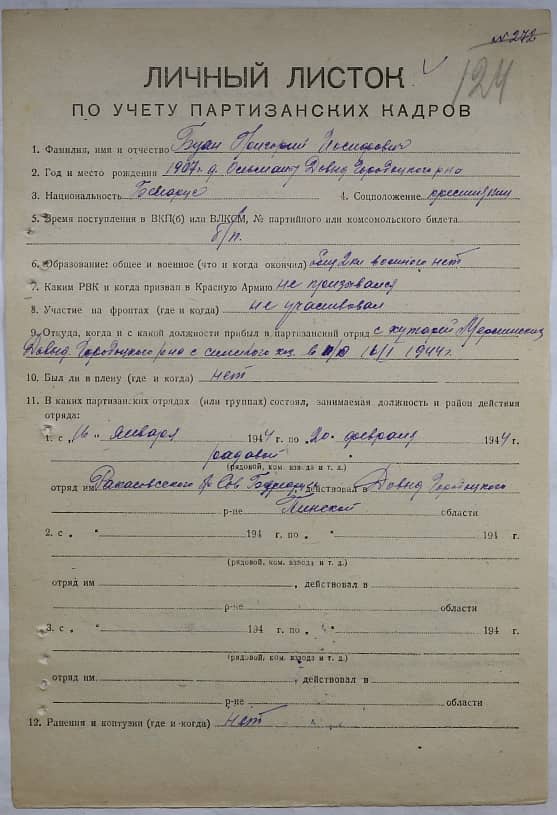 № 272
124
ЛИЧНЫЙ ЛИСТОК
ПО УЧЕТУ ПАРТИЗАНСКИХ КАДРОВ
1. Фамилия, имя и отчество Григорий Иосифович
2. Год и место рождения 1907 г. д. Ольманы Давид Городоцкого р-на
3. Национальность Беларус 4. Соцположение крестьянин
5. Время поступления в ВКП(б) или ВЛКСМ, № партийного или комсомольского билета
б/п.
6. Образование: общее и военное (что и когда окончил) общ 2 кл военного нет
7. Каким РВК и когда призван в Красную Армию не призывался
8. Участие на фронтах (где и когда) не участвовал
9. Откуда, когда и с какой должности прибыл в партизанский отряд с хуторов
Давид Городоцкого р-на с сельского хоз. в п/о 16/I 1944 г.
10. Был ли в плену (где и когда) нет
11. В каких партизанских отрядах (или группах) состоял, занимаемая должность и район действия
отряда:
1. с „16„ января 1944 г. по „20„ февраля 1944 г.
рядовой
(рядовой, ком. взвода и т. д.)
отряд им. , действовал в Давид Городоцкого
р-не Пинской области
2. с „ „ 194 г. по „ „ 194 г.
(рядовой, ком. взвода и т. д.)
отряд им , действовал в
р-не области
3. с „ „ 194 г. по „ „ 194 г.
(рядовой, ком. взвода и т. д.)
отряд им. , действовал в
р-не области
12. Ранения и контузии (где и когда) нет